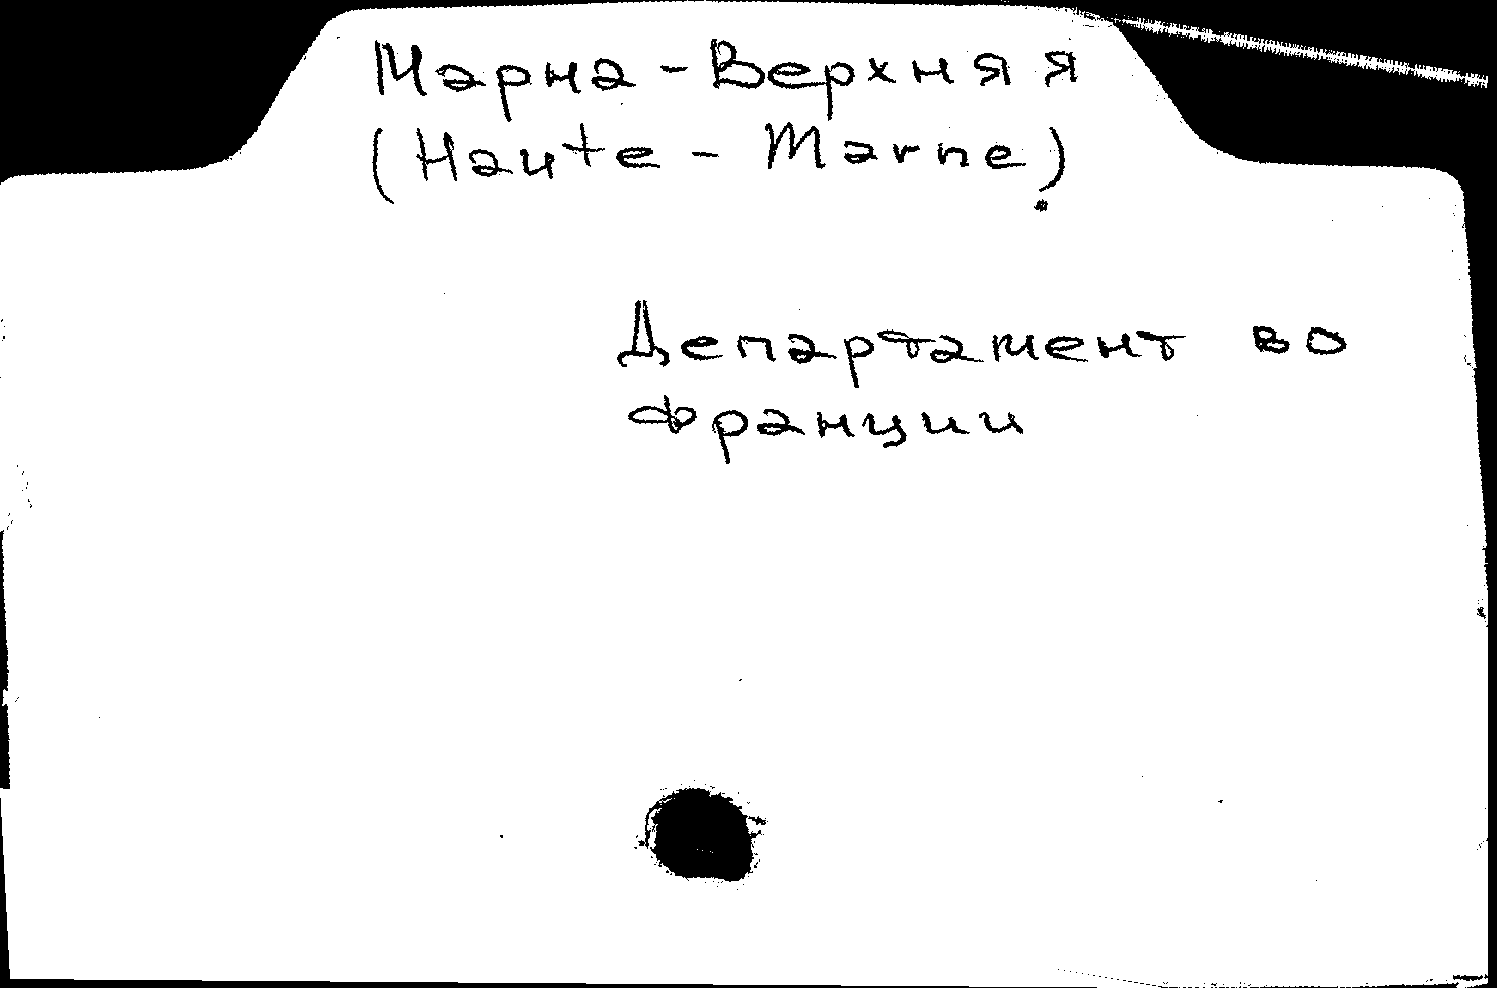 Марна - Верхняя
(Haute - Marne)
Департамент во
Франции